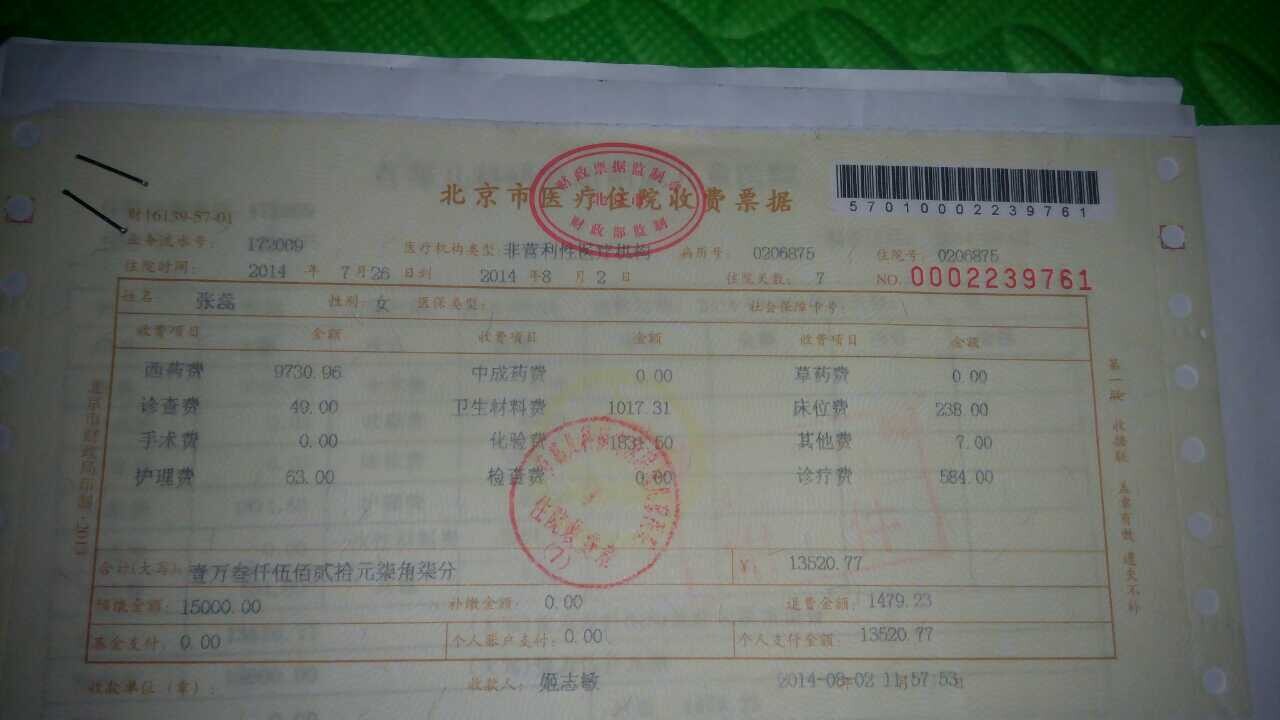 财政票据监制章
北京市
财政部监制
北京市医疗住院收费票据
57010002239761
财16139-57-01
业务流水号: 172009 医疗机构类型: 非营利性医疗机构 病历号: 0206875 住院号: 0206875
住院时间: 2014 年 7月26 日到 2014 年8 月 2 日 住院天数: 7 NO. 0002239761
姓名 张蕊 性别: 女 医保类型: 社会保障卡号:
收费项目 金额 收费项目 金额 收费项目 金额
西药费 9730.96 中成药费 0.00 草药费 0.00
诊查费 49.00 卫生材料费 1017.31 床位费 238.00
手术费 0.00 化验费 1831.50 其他费 7.00
护理费 63.00 检查费 0.00 诊疗费 584.00
住院收费章
(7)
合计(大写): 壹万叁仟伍佰贰拾元柒角柒分 ¥: 13520.77
预缴金额: 15000.00 补缴金额: 0.00 退费金额: 1479.23
基金支付: 0.00 个人账户支付: 0.00 个人支付金额: 13520.77
收款单位(章): 收款人: 姬志敏 2014-08-02 11:57:53
北京市财政局印制·2013
第一联 收据联 盖章有效 遗失不补